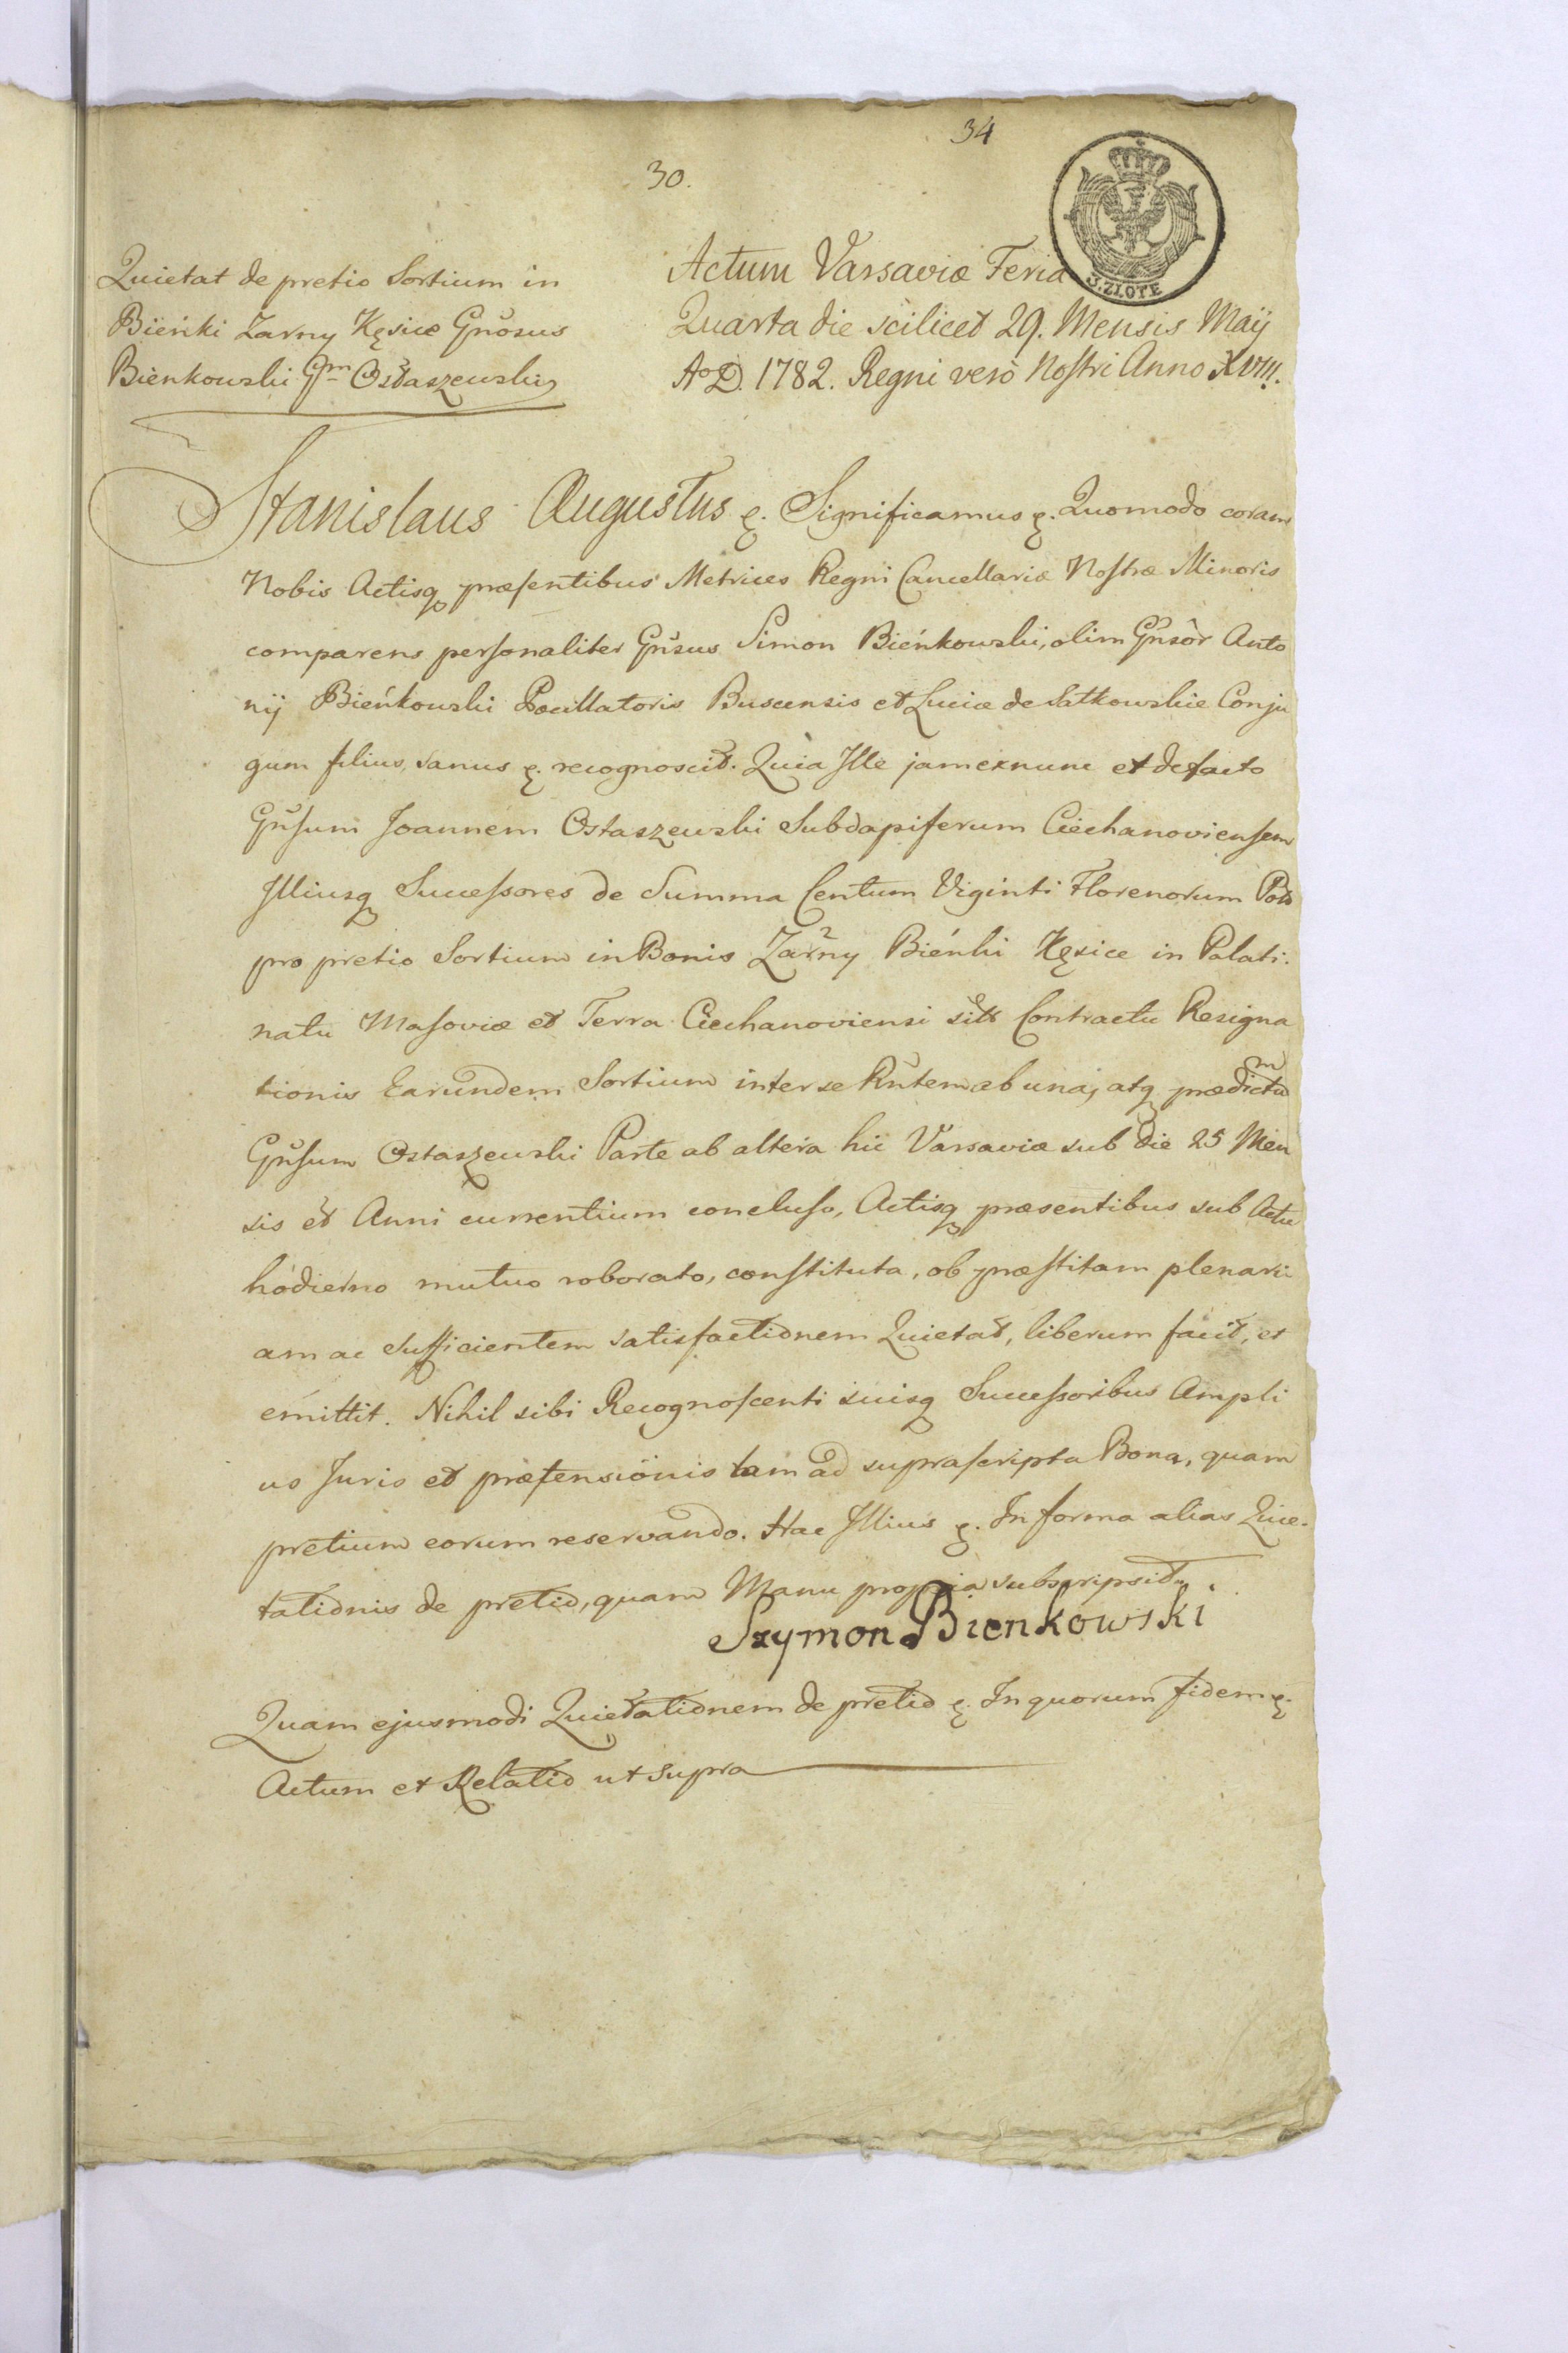 34
30.
3. ZŁOTE
Quietat de pretio Sortium in
Bieńki Zarny Kęsice Gnosus
Bienkowski Gm Ostaszewski
Actum Varsaviæ Feria
Quarta die scilicet 29. Mensis Maij
Ao D. 1782. Regni verò Nostri Anno XVIII.
Stanislaus Augustus &. Significamus &. Quomodo coram
Nobis Actisq præsentibus Metrices Regni Cancellariæ Nostræ Minoris
comparens personaliter Gnsus Simon Bieńkowski, olim Gnsor Anto
nij Bieńkowski Pocillatoris Buscensis et Luciæ de Satkowskie Conju
gum filius, sanus &. recognoscit. Quia Ille jam exnunc et defacto
Gnsum Joannem Ostaszewski Subdapiferum Ciechanoviensem
Illiusq Successores de Summa Centum Viginti Florenorum Pols
pro pretio Sortium in Bonis Zarny Bieńki Kęsice in Palati.
natu Masoviæ et Terra Ciechanoviensi sits Contractu Resigna
tionis Earundem Sortium inter se Rntem ab una, atq prædictum
Gnsum Ostaszewski Parte ab altera hic Varsaviæ sub die 25 Men
sis et Anni currentium concluso, Actisq præsentibus sub Actu
hodierno mutuo roborato, constituta, ob præstitam plenari
am ac sufficientem satisfactionem Quietat, liberum facit, et
emittit. Nihil sibi Recognoscenti suisq Successoribus Ampli
us Juris et prætensionis tam ad suprascripta Bona, quam
pretium eorum reservando. Hac Illius &. In forma alias Quie.
tationis de pretio, quam Manu propria subscripsit.
Szymon Bienkowski
Quam ejusmodi Quietationem de pretio &. In quorum fidem &.
Actum et Relatio ut supra